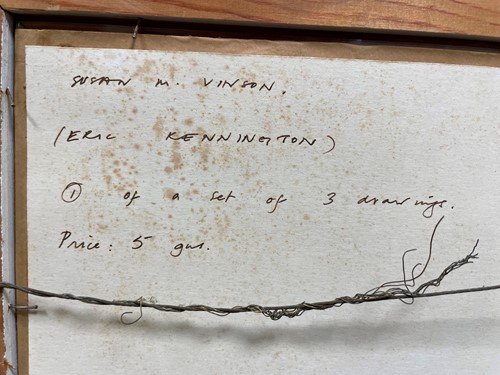 SUSAN M. VINSON.
(ERIC KENNINGTON)
① of a set of 3 drawings.
Price: 5 gns.